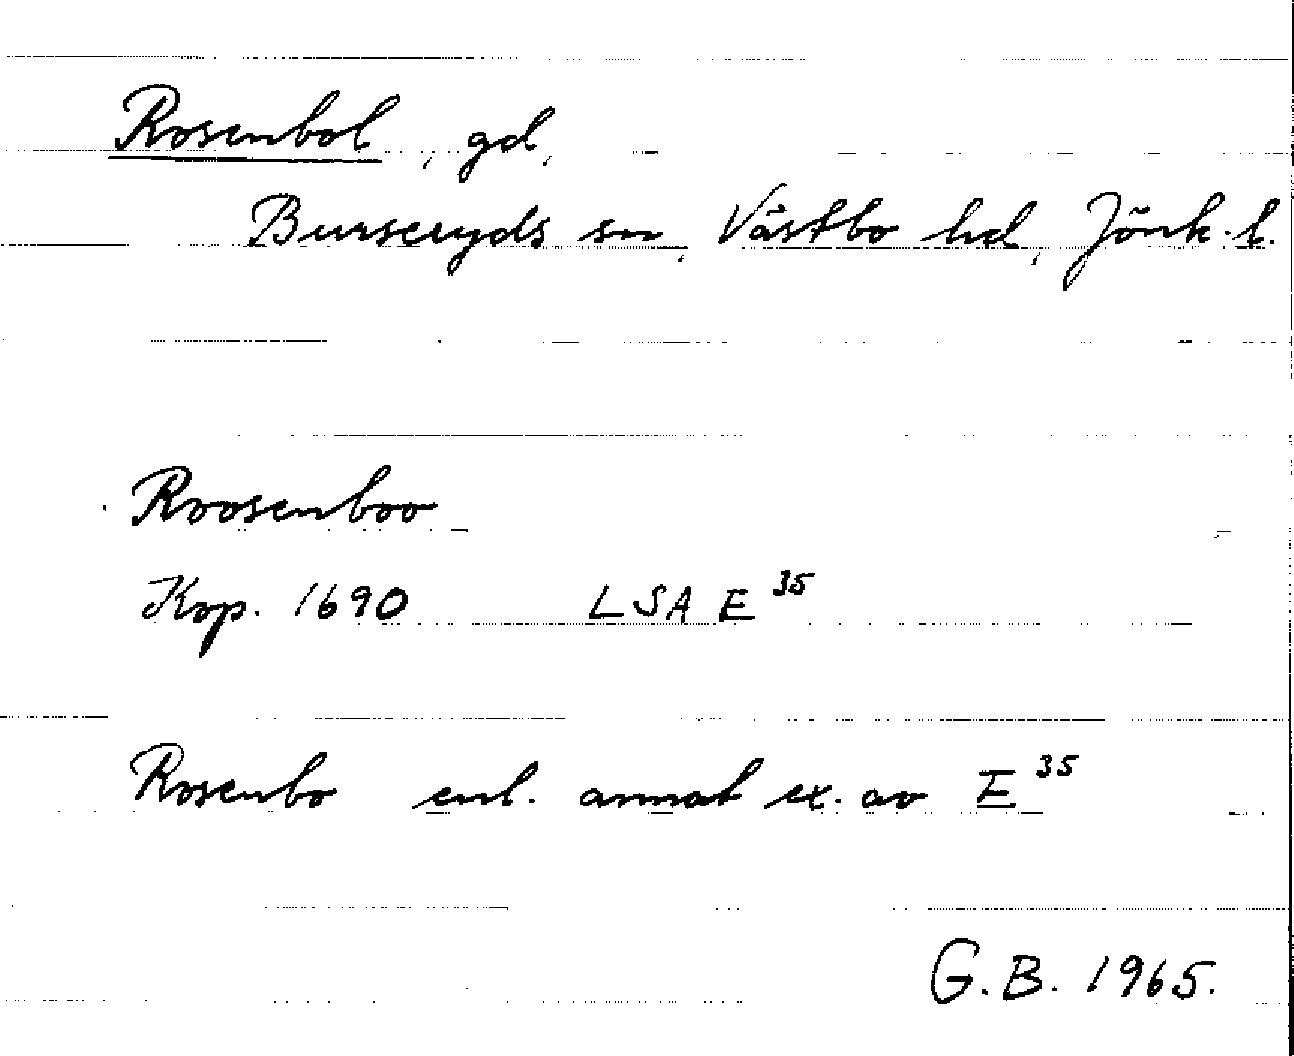 Rosenbol, gd,
Burseryds sn, Västbo hd, Jönk. l.
Roosenboo
Kop. 1690 LSA E 35
Rosenbo enl. annat ex. av E 35
G.B. 1965.